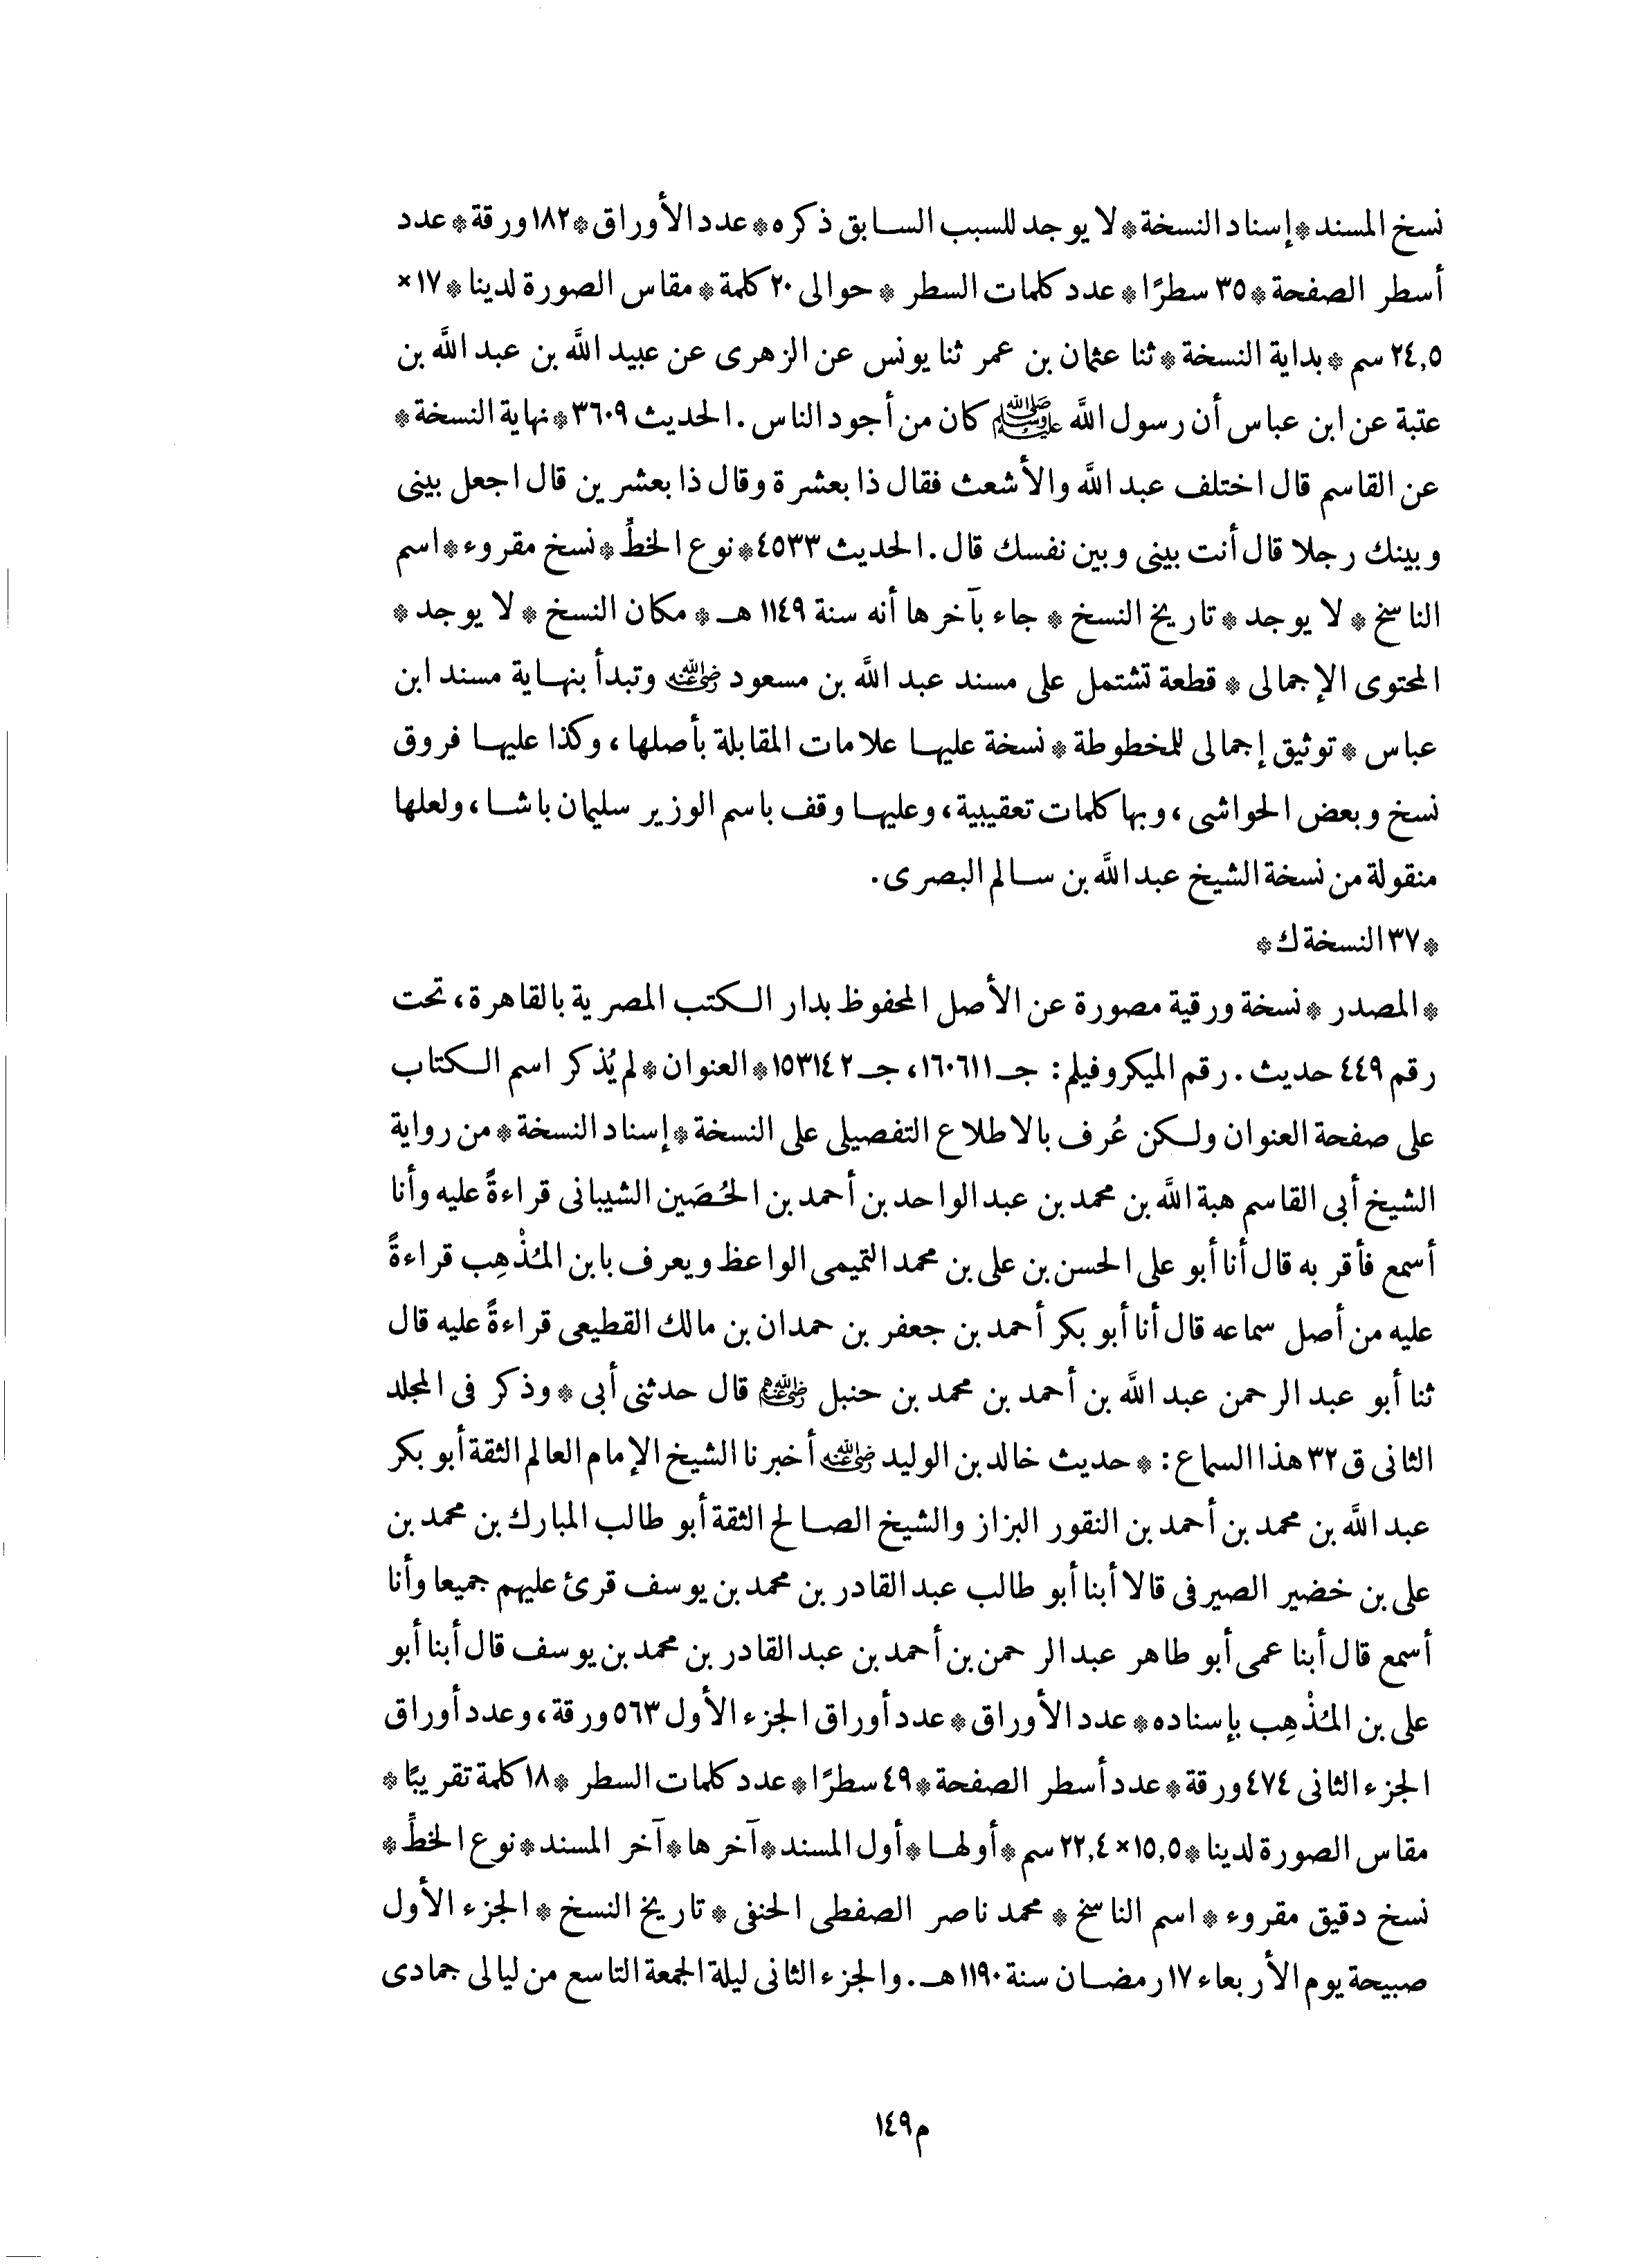 نسخ المسند * إسناد النسخة * لا يوجد للسبب السابق ذكره * عدد الأوراق * ١٨٢ ورقة * عدد
أسطر الصفحة * ٣٥ سطرًا * عدد كلمات السطر * حوالى ٢٠ كلمة * مقاس الصورة لدينا * ١٧ ×
٢٤,٥ سم * بداية النسخة * ثنا عثمان بن عمر ثنا يونس عن الزهرى عن عبيد اللَّه بن عبد اللَّه بن
عتبة عن ابن عباس أن رسول اللَّه ﷺ كان من أجود الناس . الحديث ٣٦٠٩ * نهاية النسخة *
عن القاسم قال اختلف عبد اللَّه والأشعث فقال ذا بعشرة وقال ذا بعشرين قال اجعل بينى
وبينك رجلا قال أنت بينى وبين نفسك قال . الحديث ٤٥٣٣ * نوع الخطِّ * نسخ مقروء * اسم
الناسخ * لا يوجد * تاريخ النسخ * جاء بآخرها أنه سنة ١١٤٩ هـ * مكان النسخ * لا يوجد *
المحتوى الإجمالى * قطعة تشتمل على مسند عبد اللَّه بن مسعود رضي الله عنه وتبدأ بنهاية مسند ابن
عباس * توثيق إجمالى للمخطوطة * نسخة عليها علامات المقابلة بأصلها ، وكذا عليها فروق
نسخ وبعض الحواشى ، وبها كلمات تعقيبية ، وعليها وقف باسم الوزير سليمان باشا ، ولعلها
منقولة من نسخة الشيخ عبد اللَّه بن سالم البصرى .
* ٣٧ النسخة ك *
* المصدر * نسخة ورقية مصورة عن الأصل المحفوظ بدار الكتب المصرية بالقاهرة ، تحت
رقم ٤٤٩ حديث . رقم الميكروفيلم : جـ ١٦٠٦١١ ، جـ ١٥٣١٤٢ * العنوان * لم يُذكر اسم الكتاب
على صفحة العنوان ولكن عُرف بالاطلاع التفصيلى على النسخة * إسناد النسخة * من رواية
الشيخ أبى القاسم هبة اللَّه بن محمد بن عبد الواحد بن أحمد بن الحُصَين الشيبانى قراءةً عليه وأنا
أسمع فأقر به قال أنا أبو على الحسن بن على بن محمد التميمى الواعظ ويعرف بابن المُذْهِب قراءةً
عليه من أصل سماعه قال أنا أبو بكر أحمد بن جعفر بن حمدان بن مالك القطيعى قراءةً عليه قال
ثنا أبو عبد الرحمن عبد اللَّه بن أحمد بن محمد بن حنبل رضي الله عنهم قال حدثنى أبى * وذكر فى المجلد
الثانى ق ٣٢ هذا السماع : * حديث خالد بن الوليد رضي الله عنه أخبرنا الشيخ الإمام العالم الثقة أبو بكر
عبد اللَّه بن محمد بن أحمد بن النقور البزاز والشيخ الصالح الثقة أبو طالب المبارك بن محمد بن
على بن خضير الصيرفى قالا أبنا أبو طالب عبد القادر بن محمد بن يوسف قرئ عليهم جميعا وأنا
أسمع قال أبنا عمى أبو طاهر عبد الرحمن بن أحمد بن عبد القادر بن محمد بن يوسف قال أبنا أبو
على بن المُذْهِب بإسناده * عدد الأوراق * عدد أوراق الجزء الأول ٥٦٣ ورقة ، وعدد أوراق
الجزء الثانى ٤٧٤ ورقة * عدد أسطر الصفحة * ٤٩ سطرًا * عدد كلمات السطر * ١٨ كلمة تقريبًا *
مقاس الصورة لدينا * ١٥,٥ × ٢٢,٤ سم * أولها * أول المسند * آخرها * آخر المسند * نوع الخطِّ *
نسخ دقيق مقروء * اسم الناسخ * محمد ناصر الصفطى الحنفى * تاريخ النسخ * الجزء الأول
صبيحة يوم الأربعاء ١٧ رمضان سنة ١١٩٠ هـ . والجزء الثانى ليلة الجمعة التاسع من ليالى جمادى
م ١٤٩